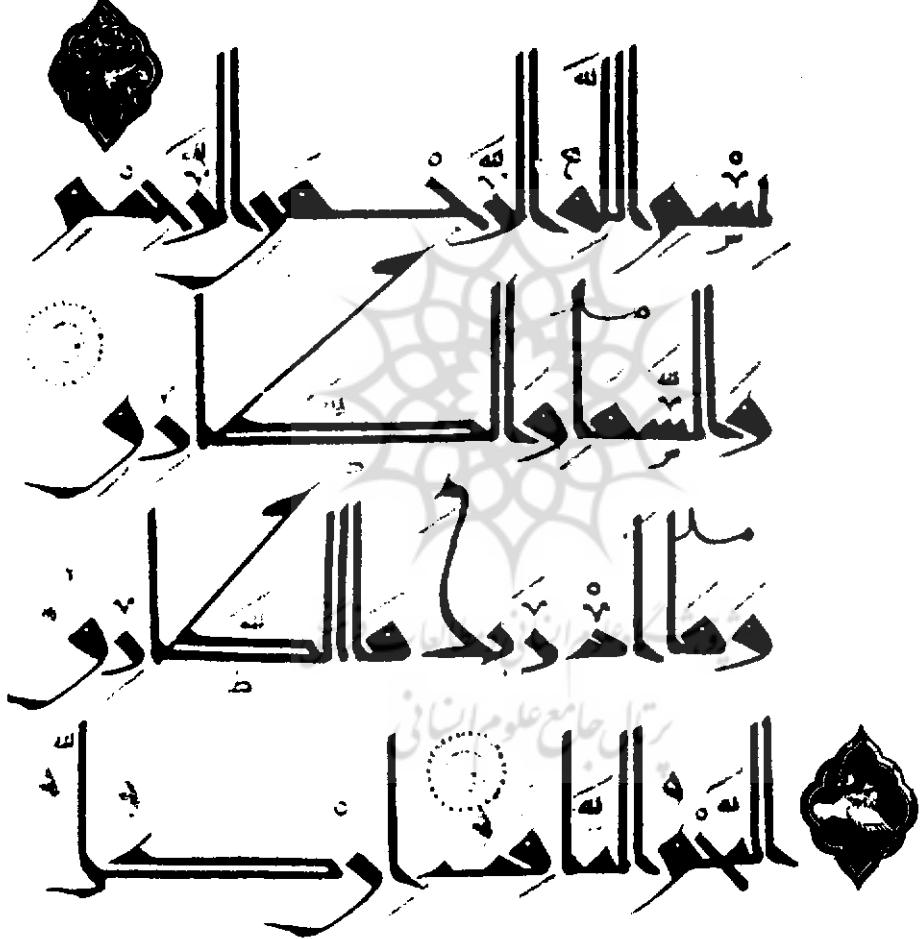 بسم الله الرحمن الرحيم
والسماء والطارق
وما ادريك ما الطارق
النجم الثاقب ان كل
پژوهشگاه علوم انسانی و مطالعات فرهنگی
پرتال جامع علوم انسانی